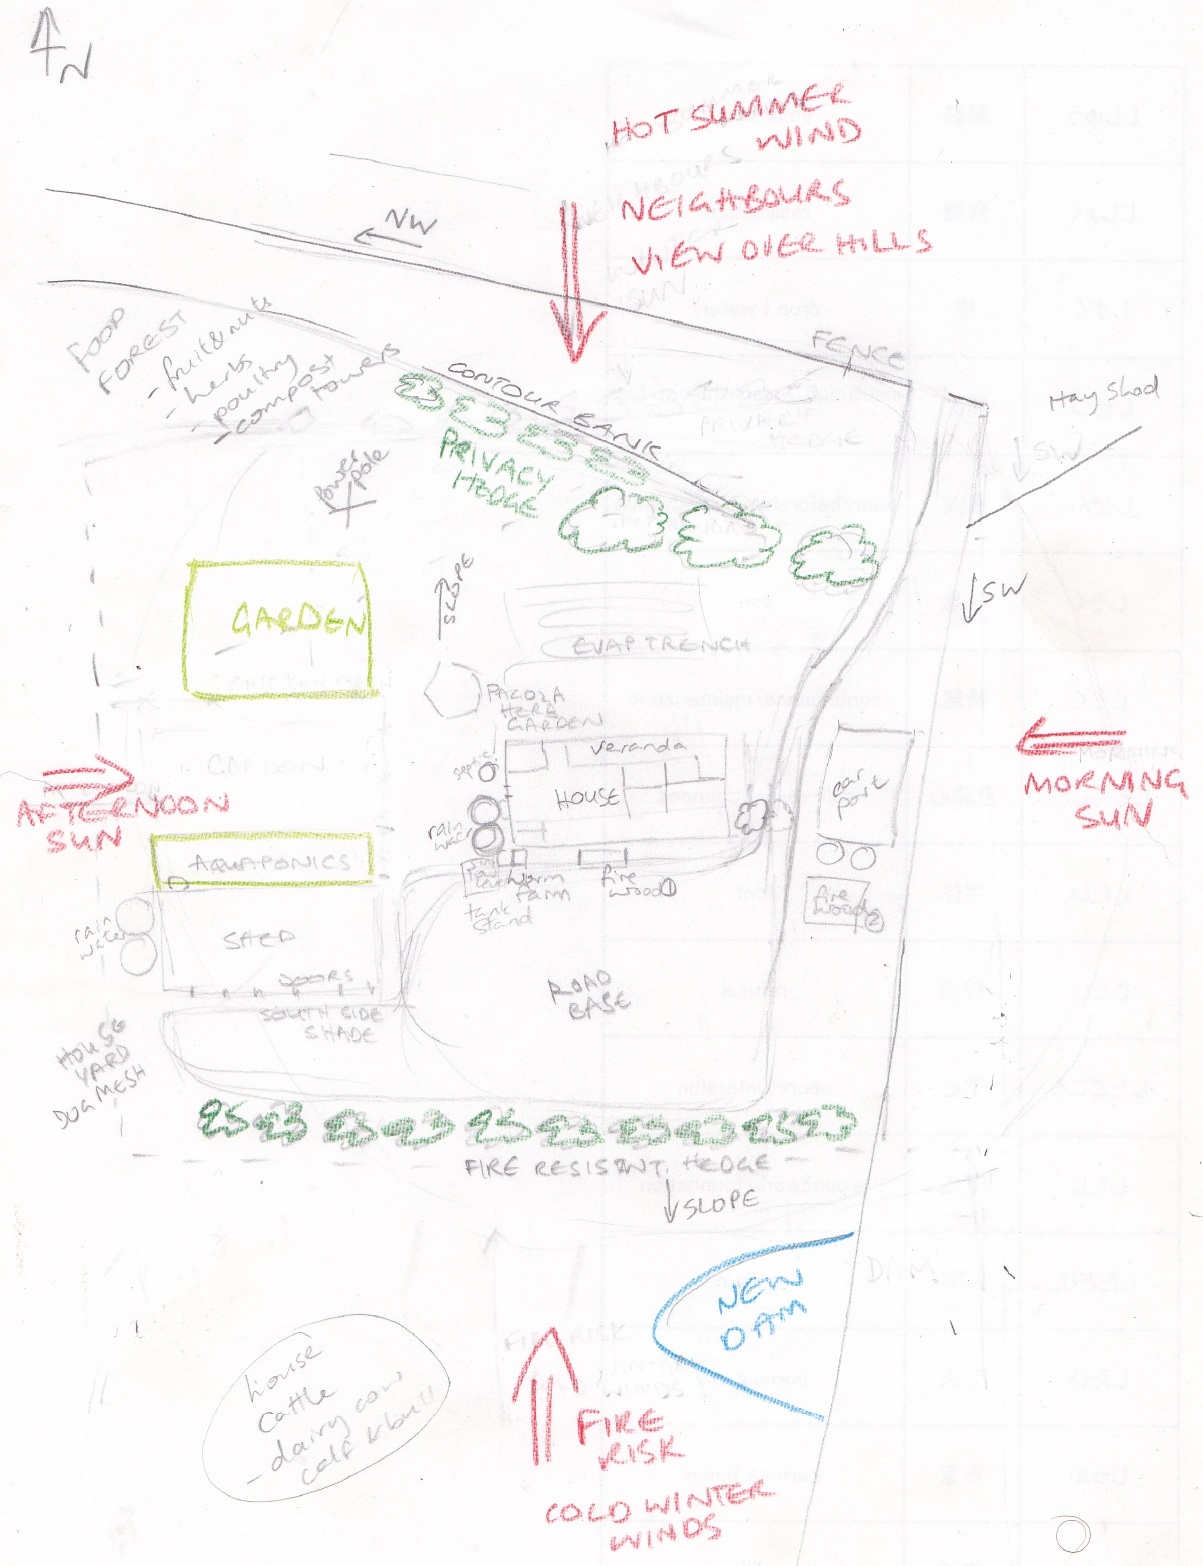 N
HOT SUMMER
WIND
NEIGHBOURS
VIEW OVER HILLS
NW
FOOD
FOREST
- fruit & nuts
- herbs
- poultry
- compost
towers
FENCE
Hay Shed
CONTOUR BANK
PRIVACY
HEDGE
Power
pole
SW
SW
SLOPE
GARDEN
EVAP TRENCH
HERB
GARDEN
veranda
septic
HOUSE
car
port
rain
water
AFTERNOON
SUN
MORNING
SUN
GARDEN
AQUAPONICS
worm
farm
fire
wood ①
tank
stand
fire
wood ②
rain
water
SHED
DOORS
SOUTH SIDE
SHADE
ROAD
BASE
HOUSE
YARD
DOG MESH
FIRE RESISTNT. HEDGE
SLOPE
NEW
DAM
DAM
FIRE RISK
WINDS
house
cattle
- dairy cow
calf & bull
FIRE
RISK
COLD WINTER
WINDS